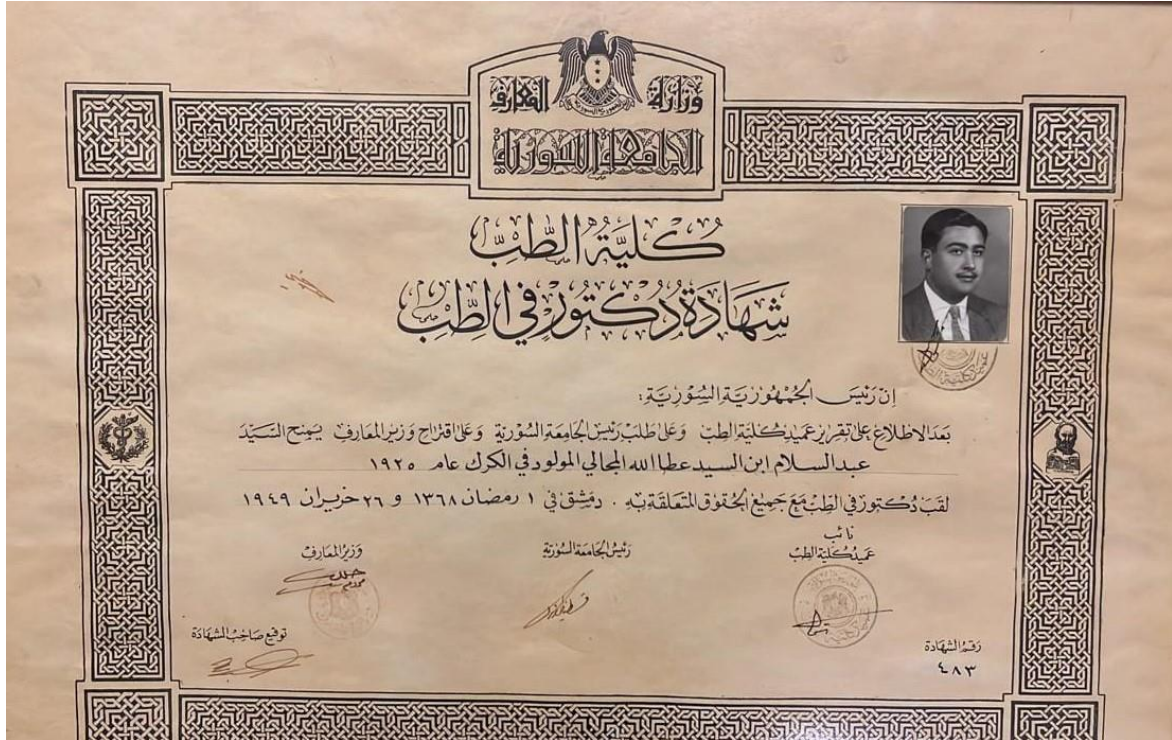 وزارة المعارف
الجامعة السورية
كُليَّة الطِّبّ
شَهَادَة دُكتُور في الطِّبّ
إن رَئيسَ الجُمْهُوريَّة السُّوريَّة:
بعد الاطلاع على تقرير عميد كلية الطب وعلى طلب رئيس الجامعة السورية وعلى اقتراح وزير المعارف يمنح السيد
عبد السلام ابن السيد عطا الله المجالي المولود في الكرك عام ١٩٢٥
لقب دكتور في الطب مع جميع الحقوق المتعلقة به . دمشق في ١ رمضان ١٣٦٨ و ٢٦ حزيران ١٩٤٩
نائب
عميد كلية الطب
رئيس الجامعة السورية
وزير المعارف
توقيع صاحب الشهادة
رقم الشهادة
٤٨٣